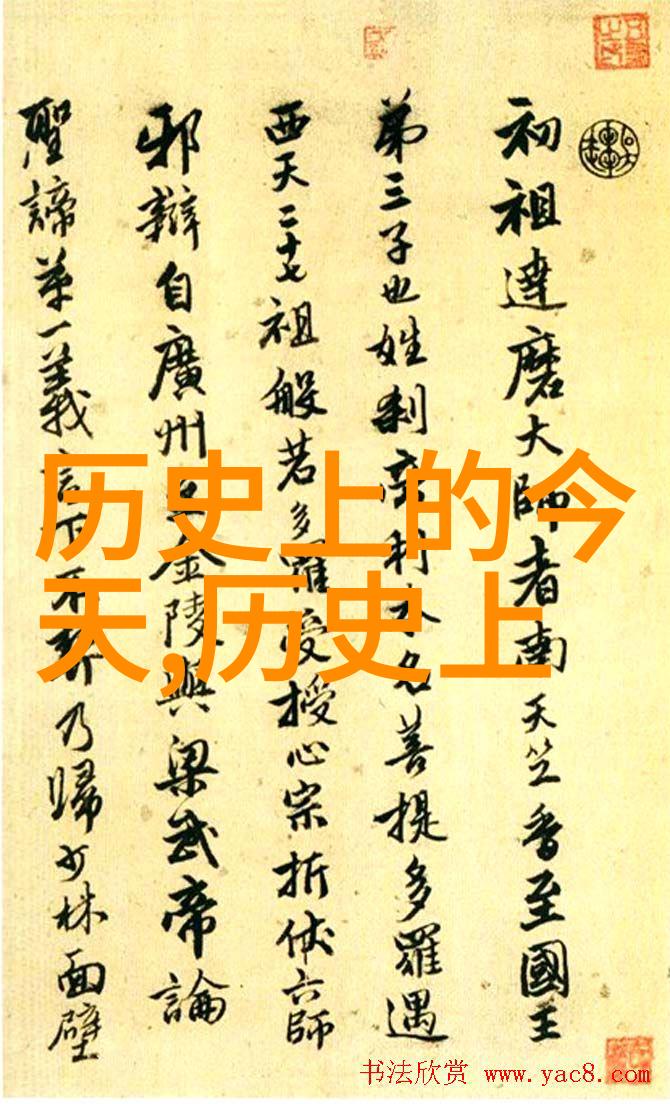 初祖達磨大師者南天竺香至國王
弟三子也姓刹帝利本名菩提多羅遇
西天二十七祖般若多羅受授心宗折伏六師
邪辯自廣州金陵與梁武帝論
聖諦第一義言下不契乃歸少林面壁
历史上的今
天,历史上
书法欣赏 www.yac8.com